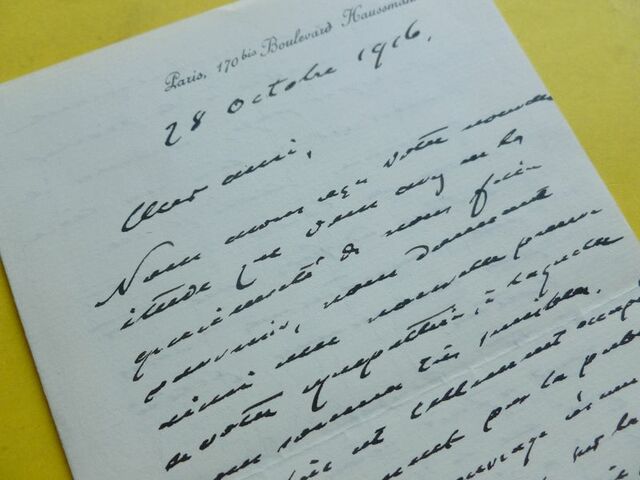 Paris, 170bis Boulevard Haussmann
28 Octobre 1916.
Cher ami,
Nous avons reçu votre nouvelle
étude que vous avez eu la
de nous faire
parvenir, nous donnant
ainsi une nouvelle preuve
de votre sympathie, à laquelle
nous sommes très sensibles.
et tellement occupé
par la
ouvrage
sur la